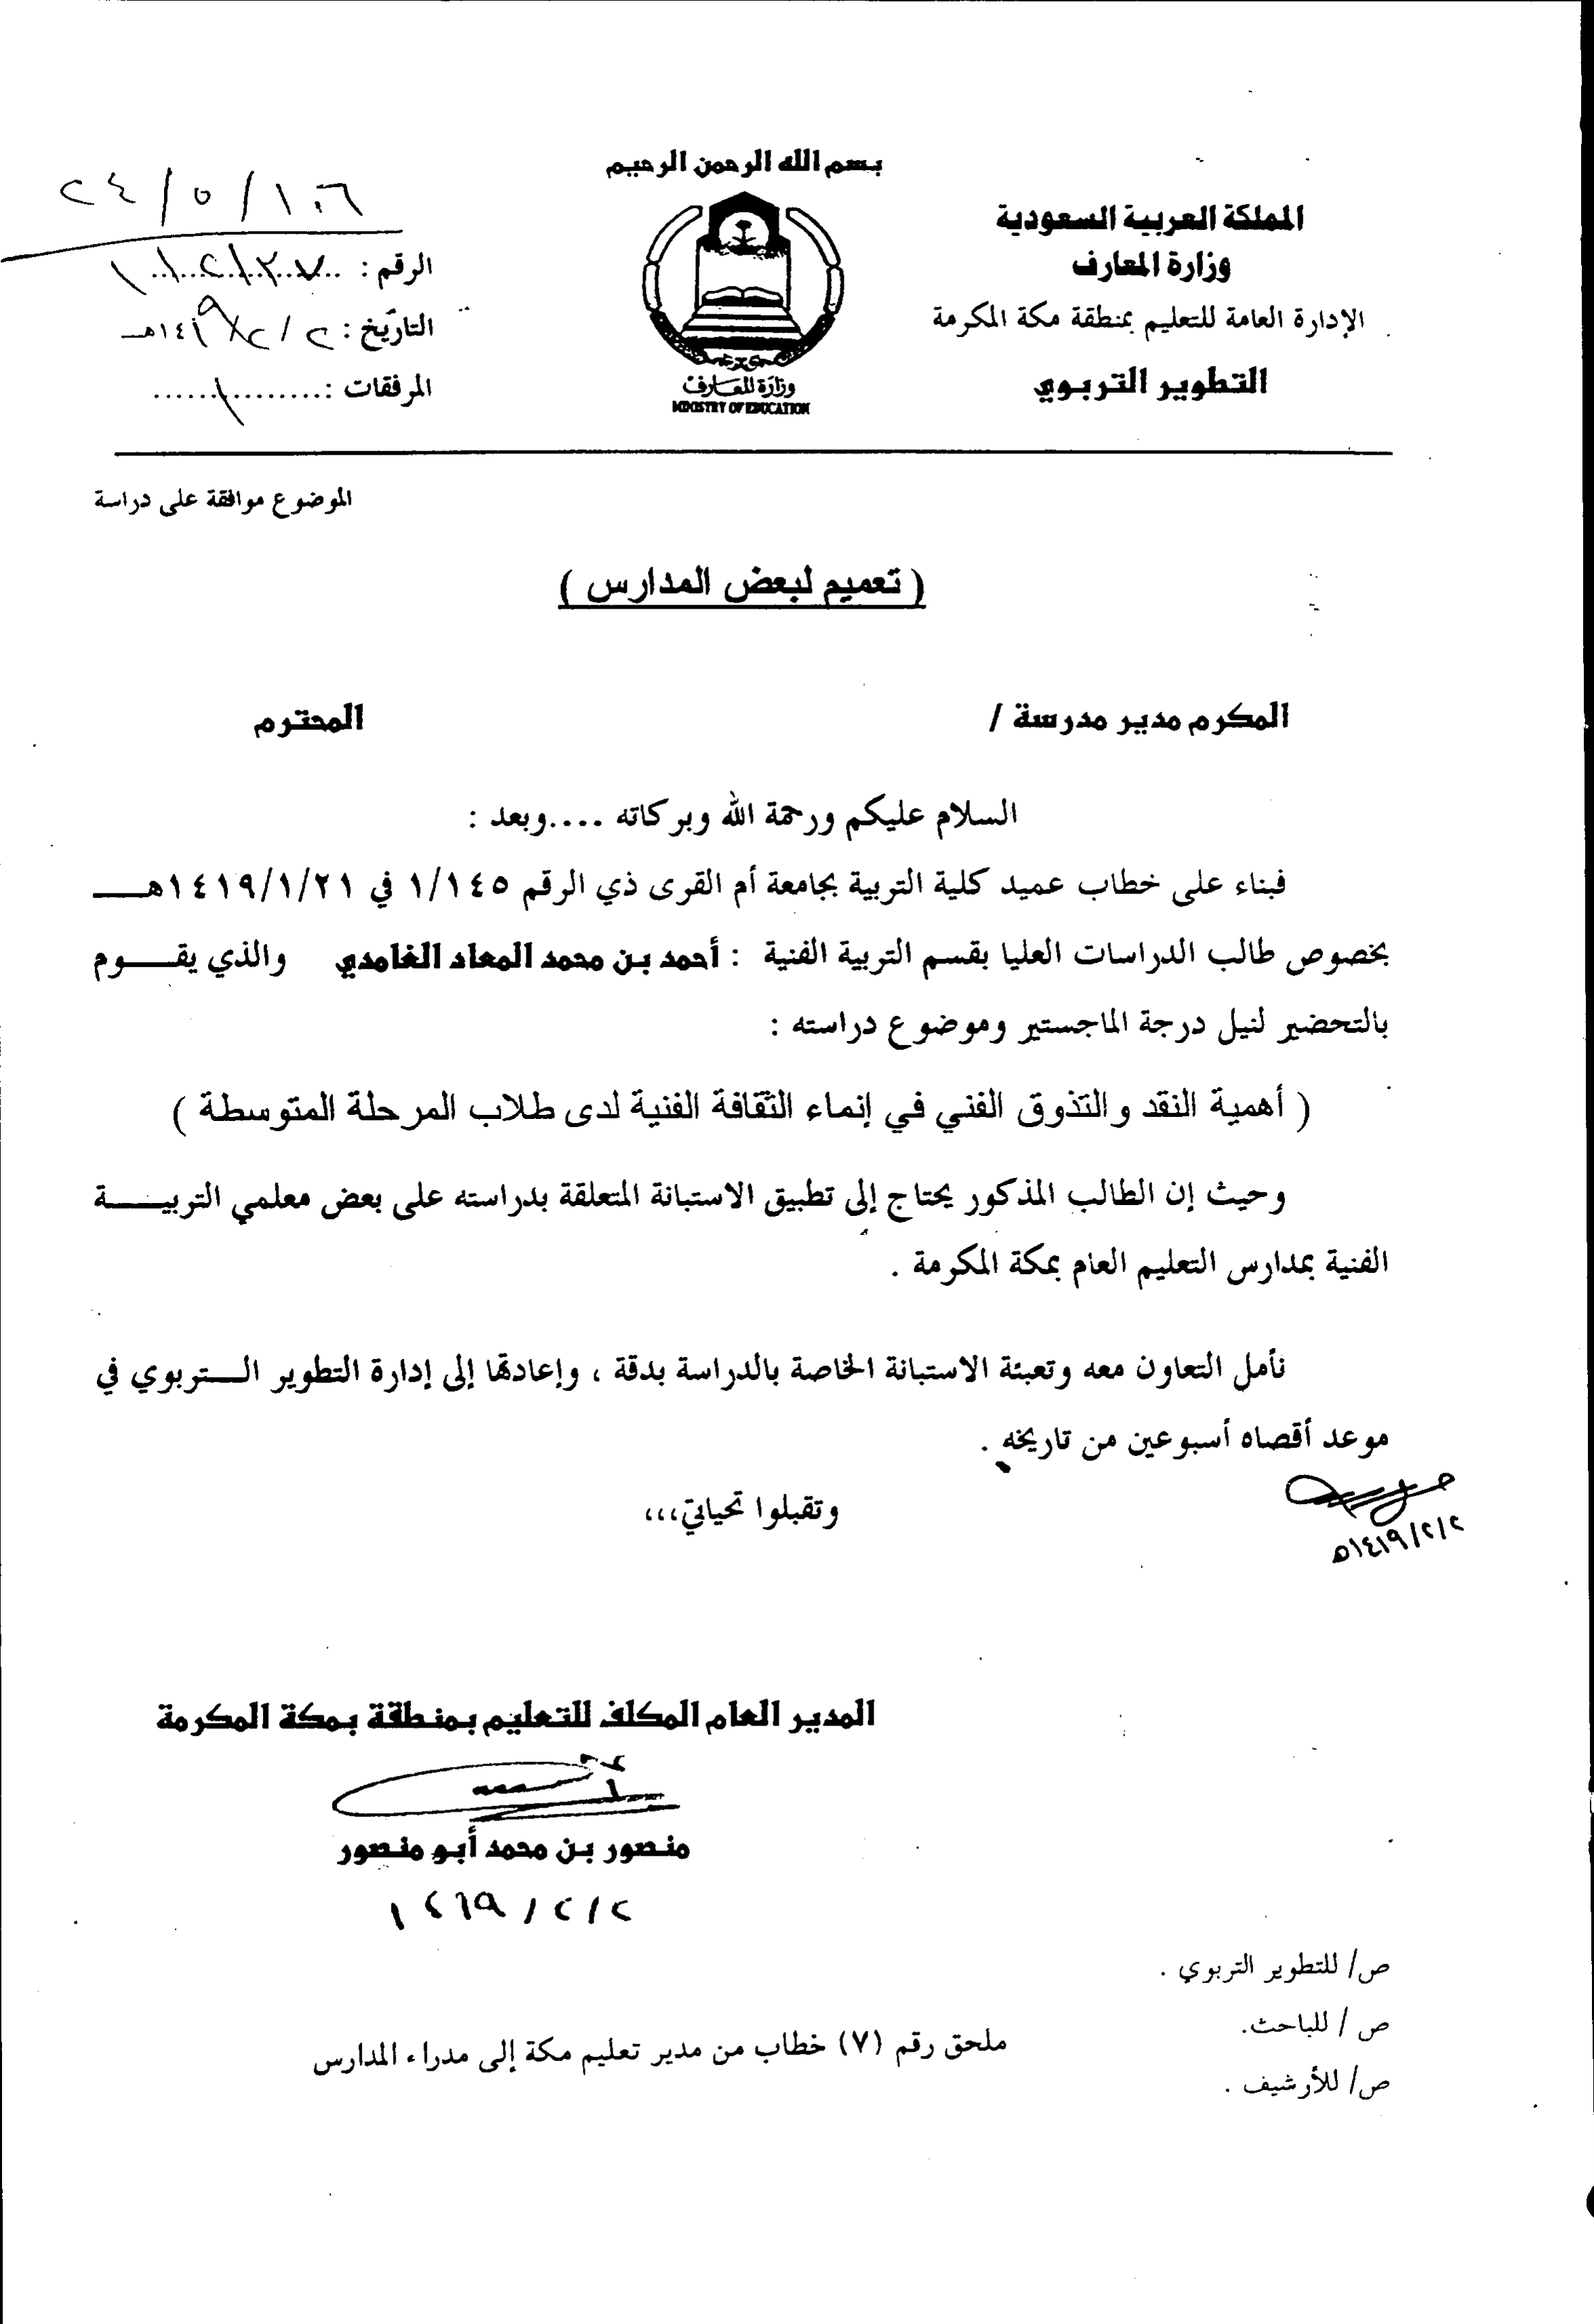 بسم الله الرحمن الرحيم
المملكة العربية السعودية
وزارة المعارف
الإدارة العامة للتعليم بمنطقة مكة المكرمة
التطوير التربوي
وزارة المعارف
MINISTRY OF EDUCATION
٢٤/٥/١٠٦
الرقم :
التاريخ : ٢/٢/١٤١٩هـ
المرفقات : ......١......
الموضوع موافقة على دراسة
( تعميم لبعض المدارس )
المكرم مدير مدرسة / المحترم
السلام عليكم ورحمة الله وبركاته ....وبعد :
فبناء على خطاب عميد كلية التربية بجامعة أم القرى ذي الرقم ١/١٤٥ في ١٤١٩/١/٢١هـ
بخصوص طالب الدراسات العليا بقسم التربية الفنية : أحمد بن محمد المعاد الغامدي والذي يقوم
بالتحضير لنيل درجة الماجستير وموضوع دراسته :
( أهمية النقد والتذوق الفني في إنماء الثقافة الفنية لدى طلاب المرحلة المتوسطة )
وحيث إن الطالب المذكور يحتاج إلى تطبيق الاستبانة المتعلقة بدراسته على بعض معلمي التربية
الفنية بمدارس التعليم العام بمكة المكرمة .
نأمل التعاون معه وتعبئة الاستبانة الخاصة بالدراسة بدقة ، وإعادتها إلى إدارة التطوير التربوي في
موعد أقصاه أسبوعين من تاريخه .
وتقبلوا تحياتي،،،
١٤١٩/٢/٢هـ
المدير العام المكلف للتعليم بمنطقة بمكة المكرمة
منصور بن محمد أبو منصور
١٤١٩/٢/٢
ص/ للتطوير التربوي .
ص / للباحث.
ص/ للأرشيف .
ملحق رقم (٧) خطاب من مدير تعليم مكة إلى مدراء المدارس